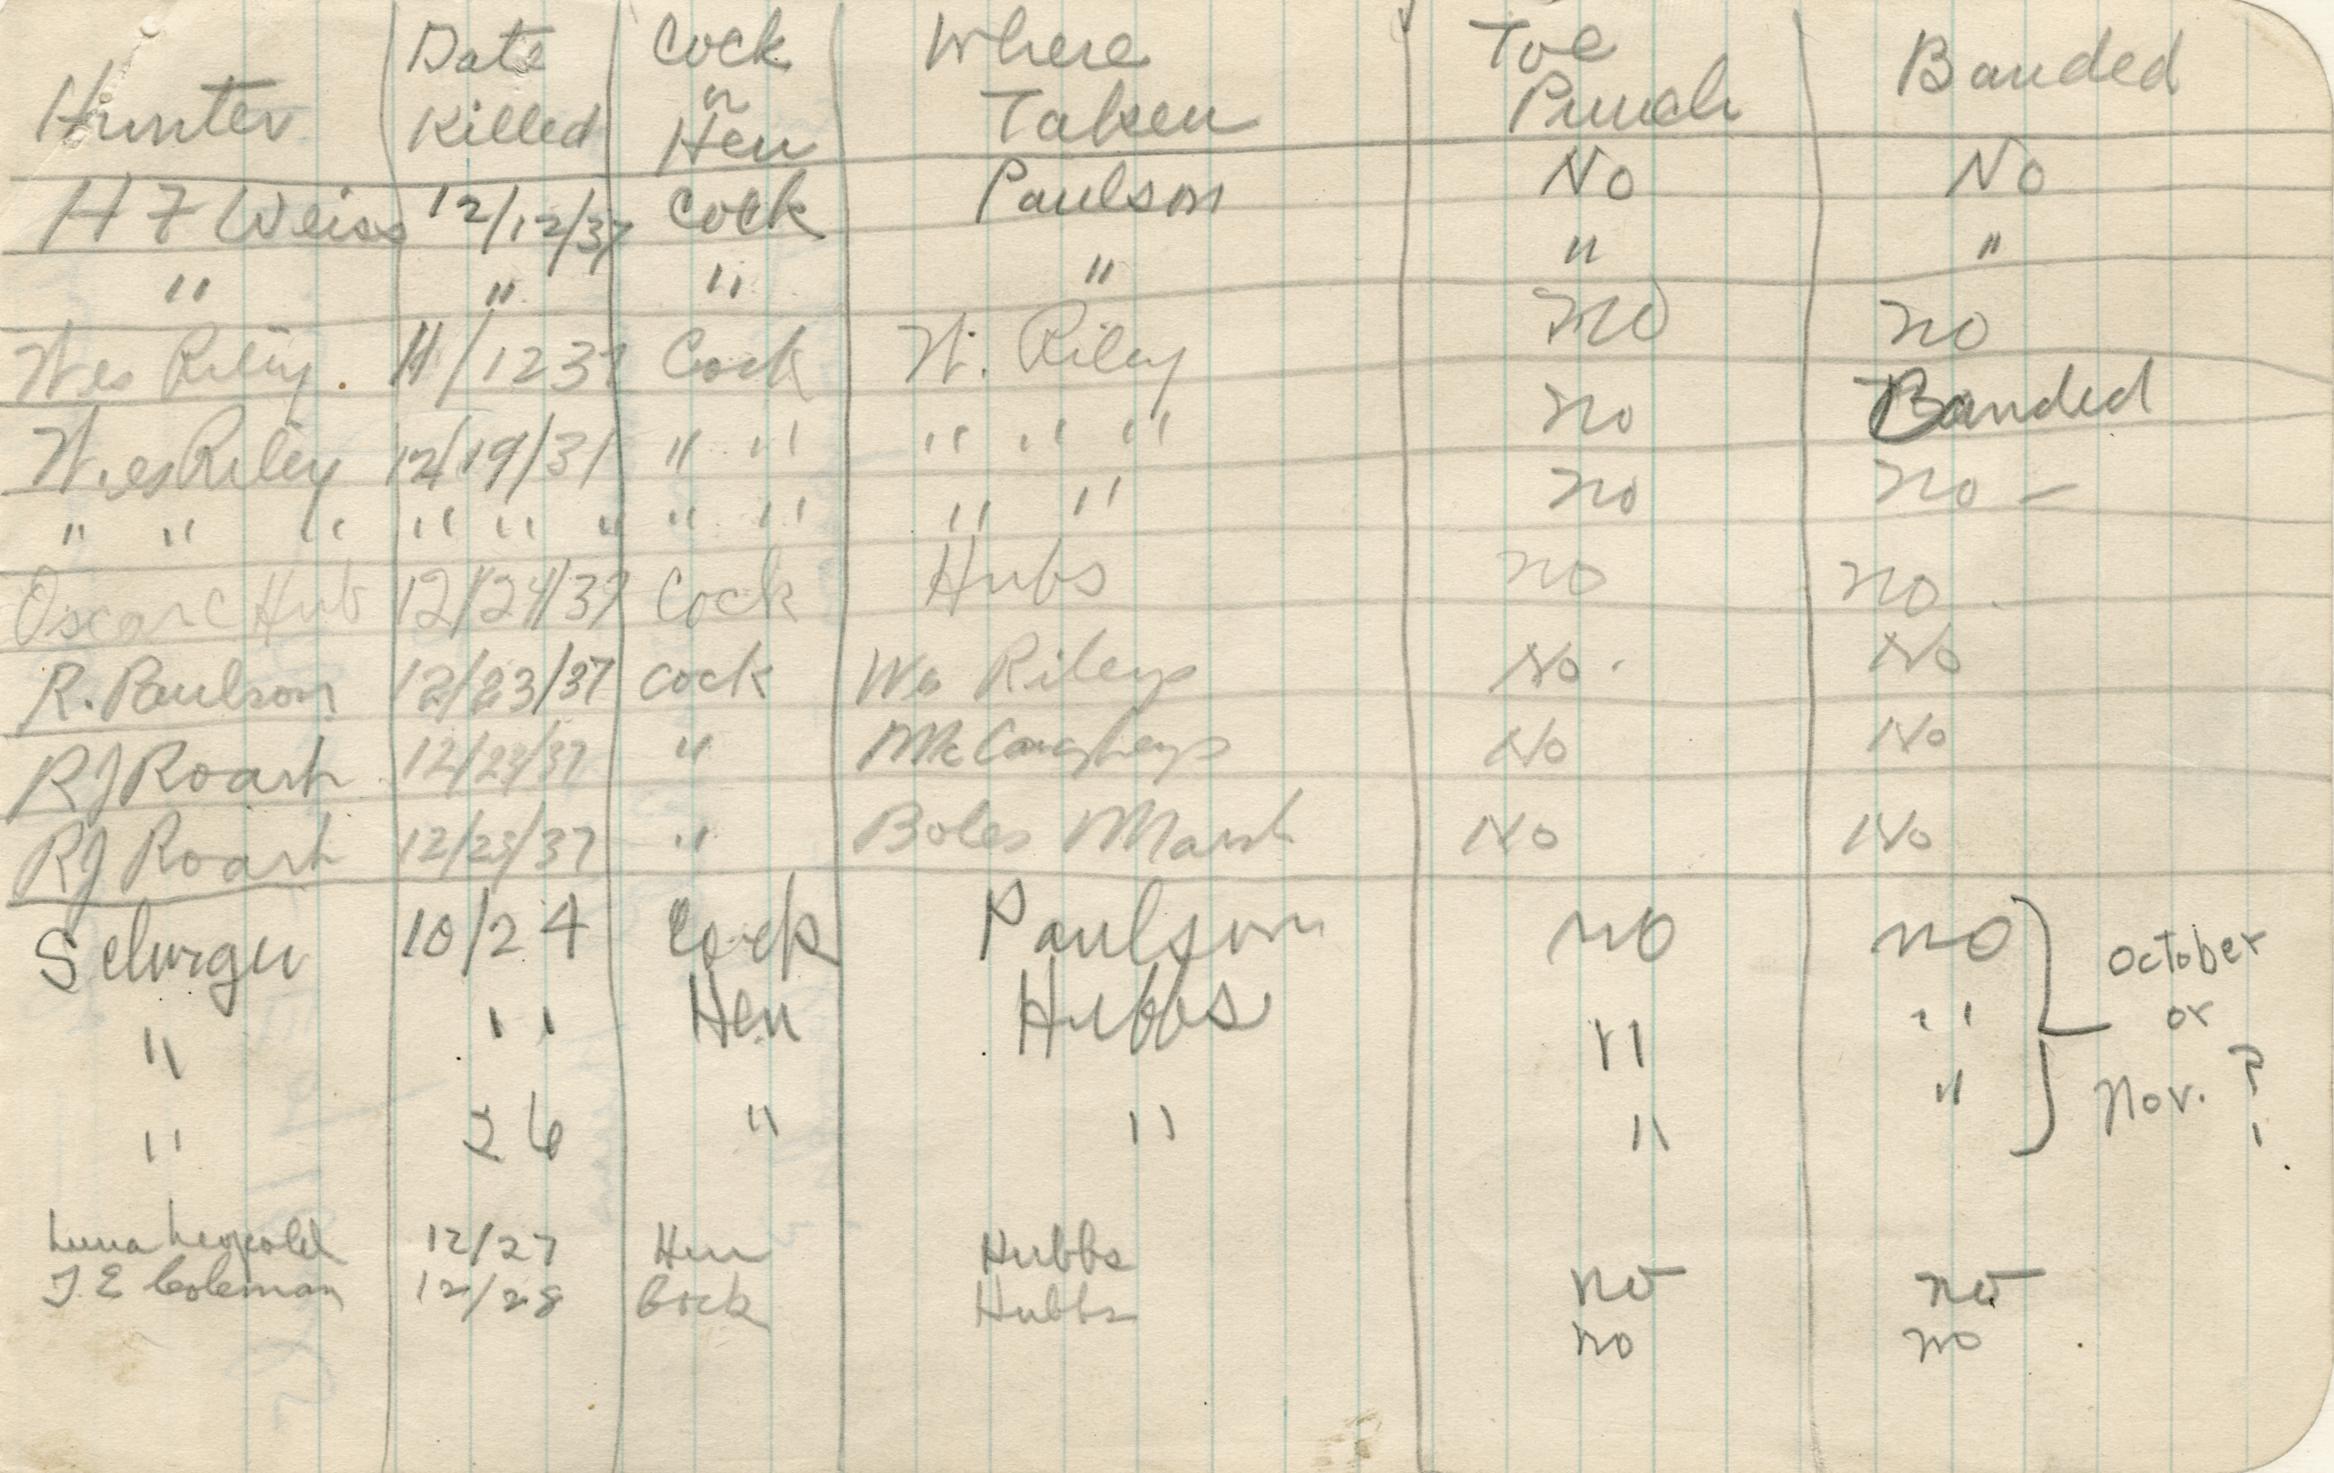 Hunter Date Killed Cock or Hen Where Taken Toe Punch Banded
H F Weiss 12/12/37 Cock Paulson No No
" " " " " "
Wes Riley. 11/12 37 Cock W. Riley no no
Wes Riley 12/19/37 " " " " " no Banded
" " " " " " " " " " no no –
Oscar C Hub 12/24/37 Cock Hubs no no
R. Paulson 12/23/37 cock Ws Rileys No. No
RJ Roark 12/23/37 " McCaugheys No No
RJ Roark 12/25/37 " Boles Marsh No No
10/24 Cock Paulson no no
" " Hen Hubbs " "
" 26 " " " "
October or Nov. ?
Luna Leopold 12/27 Hen Hubbs no no
T E Coleman 12/28 Cock Hubbs no no